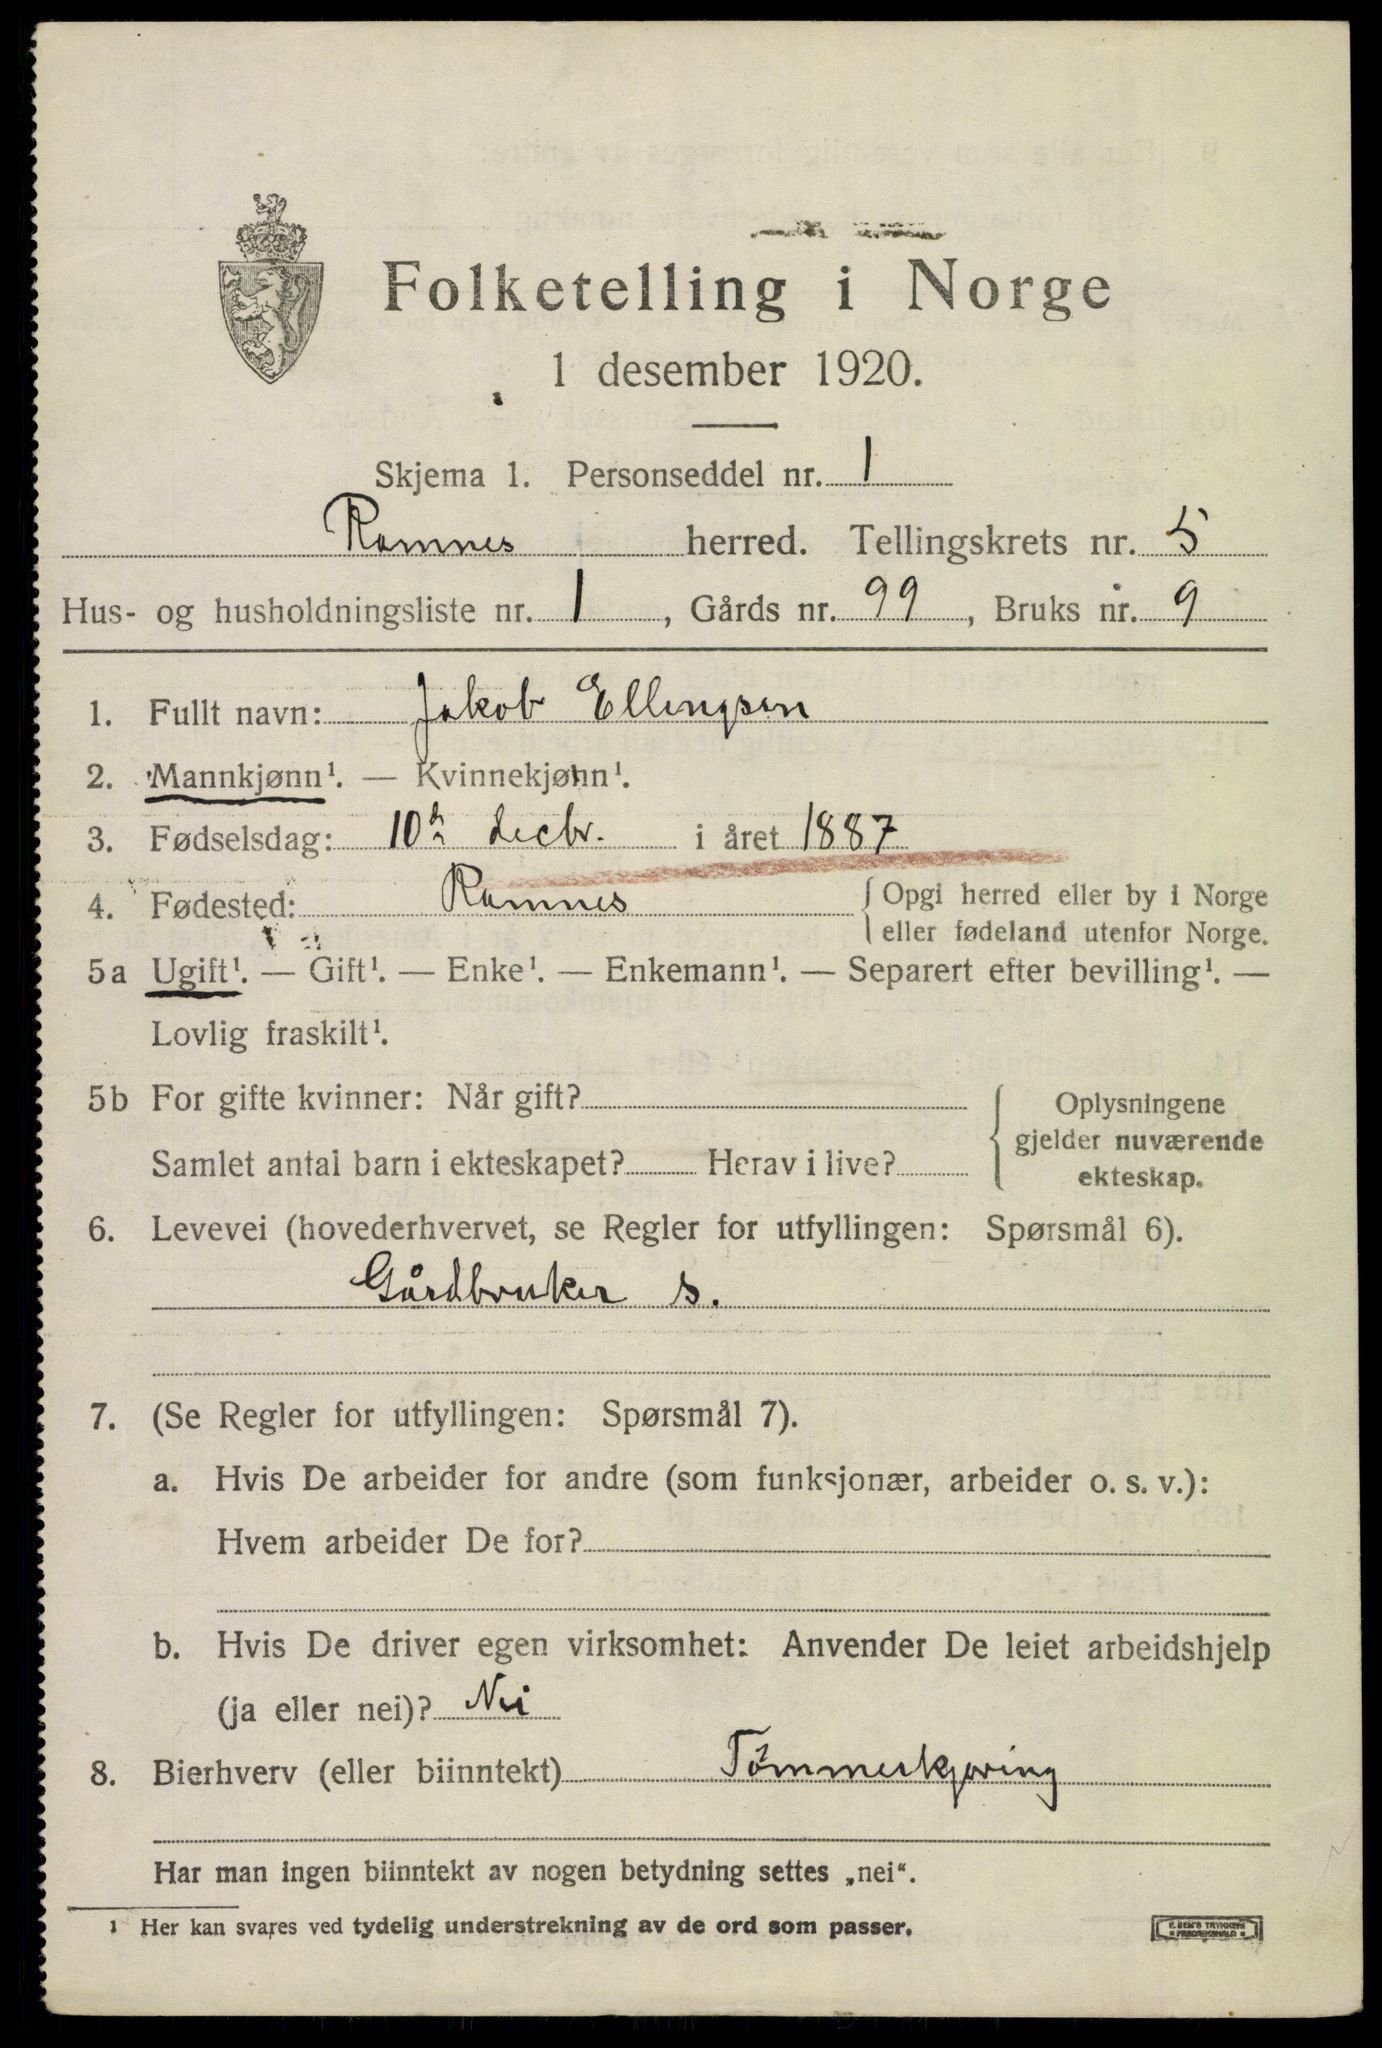 Folketelling i Norge
1 desember 1920.
Skjema 1. Personseddel nr. 1
Ramnes herred. Tellingskrets nr. 5
Hus- og husholdningsliste nr. 1, Gårds nr. 99, Bruks nr. 9
1. Fullt navn: Jakob Ellingsen
2. Mannkjønn¹. — Kvinnekjønn¹.
3. Fødselsdag: 10de decbr. i året 1887
4. Fødested: Ramnes {Opgi herred eller by i Norge
eller fødeland utenfor Norge.
5a Ugift¹. — Gift¹. — Enke¹. — Enkemann¹. — Separert efter bevilling¹. —
Lovlig fraskilt¹.
5b For gifte kvinner: Når gift?
Samlet antal barn i ekteskapet? Herav i live?
Oplysningene
gjelder nuværende
ekteskap.
6. Levevei (hovederhvervet, se Regler for utfyllingen: Spørsmål 6).
Gårdbruker s.
7. (Se Regler for utfyllingen: Spørsmål 7).
a. Hvis De arbeider for andre (som funksjonær, arbeider o. s. v.):
Hvem arbeider De for?
b. Hvis De driver egen virksomhet: Anvender De leiet arbeidshjelp
(ja eller nei)? Nei
8. Bierhverv (eller biinntekt) Tømmerkjøring
Har man ingen biinntekt av nogen betydning settes „nei“.
¹ Her kan svares ved tydelig understrekning av de ord som passer.